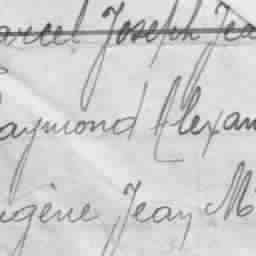 arcel Joseph Jea
aymond Alexan
ugène Jean M